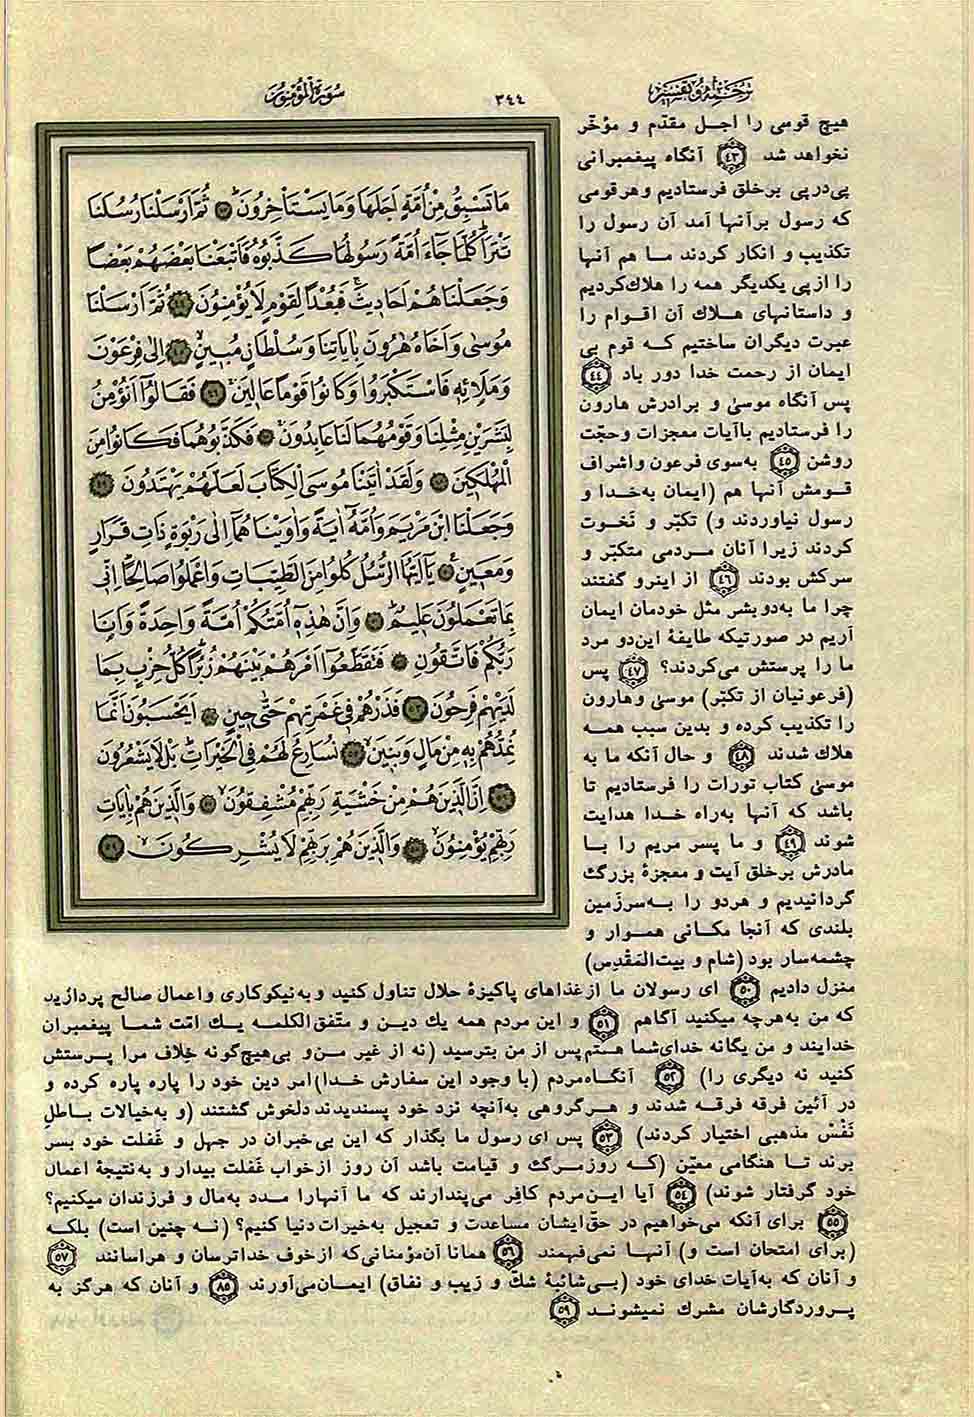 ترجمه و تفسیر
٣٤٤
سورة المؤمنون
مَا تَسْبِقُ مِنْ أُمَّةٍ أَجَلَهَا وَمَا يَسْتَأْخِرُونَ ٤٣ ثُمَّ أَرْسَلْنَا رُسُلَنَا
تَتْرَا كُلَّمَا جَاءَ أُمَّةً رَسُولُهَا كَذَّبُوهُ فَأَتْبَعْنَا بَعْضَهُمْ بَعْضًا
وَجَعَلْنَاهُمْ أَحَادِيثَ فَبُعْدًا لِقَوْمٍ لَا يُؤْمِنُونَ ٤٤ ثُمَّ أَرْسَلْنَا
مُوسٰى وَأَخَاهُ هٰرُونَ بِاٰيَاتِنَا وَسُلْطَانٍ مُبِينٍ ٤٥ إِلٰى فِرْعَوْنَ
وَمَلَائِهِ فَاسْتَكْبَرُوا وَكَانُوا قَوْمًا عَالِينَ ٤٦ فَقَالُوا أَنُؤْمِنُ
لِبَشَرَيْنِ مِثْلِنَا وَقَوْمُهُمَا لَنَا عَابِدُونَ ٤٧ فَكَذَّبُوهُمَا فَكَانُوا مِنَ
الْمُهْلَكِينَ ٤٨ وَلَقَدْ اٰتَيْنَا مُوسَى الْكِتَابَ لَعَلَّهُمْ يَهْتَدُونَ ٤٩
وَجَعَلْنَا ابْنَ مَرْيَمَ وَأُمَّهُ اٰيَةً وَاٰوَيْنَاهُمَا إِلٰى رَبْوَةٍ ذَاتِ قَرَارٍ
وَمَعِينٍ ٥٠ يَا أَيُّهَا الرُّسُلُ كُلُوا مِنَ الطَّيِّبَاتِ وَاعْمَلُوا صَالِحًا إِنِّي
بِمَا تَعْمَلُونَ عَلِيمٌ ٥١ وَإِنَّ هٰذِهِ أُمَّتُكُمْ أُمَّةً وَاحِدَةً وَأَنَا
رَبُّكُمْ فَاتَّقُونِ ٥٢ فَتَقَطَّعُوا أَمْرَهُمْ بَيْنَهُمْ زُبُرًا كُلُّ حِزْبٍ بِمَا
لَدَيْهِمْ فَرِحُونَ ٥٣ فَذَرْهُمْ فِي غَمْرَتِهِمْ حَتّٰى حِينٍ ٥٤ أَيَحْسَبُونَ أَنَّمَا
نُمِدُّهُمْ بِهِ مِنْ مَالٍ وَبَنِينَ ٥٥ نُسَارِعُ لَهُمْ فِي الْخَيْرَاتِ بَلْ لَا يَشْعُرُونَ
٥٦ إِنَّ الَّذِينَ هُمْ مِنْ خَشْيَةِ رَبِّهِمْ مُشْفِقُونَ ٥٧ وَالَّذِينَ هُمْ بِاٰيَاتِ
رَبِّهِمْ يُؤْمِنُونَ ٥٨ وَالَّذِينَ هُمْ بِرَبِّهِمْ لَا يُشْرِكُونَ ٥٩
هیچ قومی را اجل مقدّم و مؤخّر
نخواهد شد ٤٣ آنگاه پیغمبرانی
پی‌درپی برخلق فرستادیم وهرقومی
که رسول برآنها آمد آن رسول را
تکذیب و انکار کردند ما هم آنها
را ازپی یکدیگر همه را هلاک‌کردیم
و داستانهای هلاك آن اقوام را
عبرت دیگران ساختیم که قوم بی
ایمان از رحمت خدا دور باد ٤٤
پس آنگاه موسیٰ و برادرش هارون
را فرستادیم باآیات معجزات وحجّت
روشن ٤٥ به‌سوی فرعون واشراف
قومش آنها هم (ایمان به‌خدا و
رسول نیاوردند و) تکبّر و نَخوت
کردند زیرا آنان مردمی متکبّر و
سرکش بودند ٤٦ از اینرو گفتند
چرا ما به‌دوبشر مثل خودمان ایمان
آریم در صورتیکه طایفهٔ این‌دو مرد
ما را پرستش می‌کردند؟ ٤٧ پس
(فرعونیان از تکبّر) موسیٰ وهارون
را تکذیب کرده و بدین سبب همه
هلاك شدند ٤٨ و حال آنکه ما به
موسیٰ کتاب تورات را فرستادیم تا
باشد که آنها به‌راه خدا هدایت
شوند ٤٩ و ما پسر مریم را با
مادرش برخلق آیت و معجزهٔ بزرگ
گردانیدیم و هردو را به‌سرزمین
بلندی که آنجا مکانی هموار و
چشمه‌سار بود (شام و بیت‌المَقْدِس)
منزل دادیم ٥٠ ای رسولان ما ازغذاهای پاکیزهٔ حلال تناول کنید وبه‌نیکوکاری واعمال صالح پردازید
که من به‌هرچه میکنید آگاهم ٥١ و این مردم همه یك دین و متّفق‌الکلمه یك امّت شما پیغمبران
خدایند و من یگانه خدای‌شما هستم‌پس از من بترسید (نه از غیر من‌و بی‌هیچ‌گونه خِلاف مرا پرستش
کنید نه دیگری را) ٥٢ آنگاه‌مردم (با وجود این سفارش خدا)امر دین خود را پاره پاره کرده و
در آئین فرقه فرقه شدند و هرگروهی به‌آنچه نزد خود پسندیدند دلخوش گشتند (و به‌خیالات باطلِ
نَفْسْ مذهبی اختیار کردند) ٥٣ پس ای رسول ما بگذار که این بی‌خبران در جهل و غفلت خود بسر
برند تا هنگامی معیّن (که روزمرگ و قیامت باشد آن روز ازخواب غَفلت بیدار و به‌نتیجهٔ اعمال
خود گرفتار شوند) ٥٤ آیا این‌مردم کافر می‌پندارند که ما آنهارا مدد به‌مال و فرزندان میکنیم؟
٥٥ برای آنکه می‌خواهیم در حق‌ّایشان مساعدت و تعجیل به‌خیرات‌دنیا کنیم؟ (نه چنین است) بلکه
(برای امتحان است و) آنها نمی‌فهمند ٥٦ همانا آن‌مؤمنانی‌که ازخوف خداترسان و هراسانند ٥٧
و آنان که به‌آیات خدای خود (بی‌شائبهٔ شكّ و رَیب و نفاق) ایمان‌می‌آورند ٥٨ و آنان که هرگز به
پروردگارشان مشرك نمیشوند ٥٩